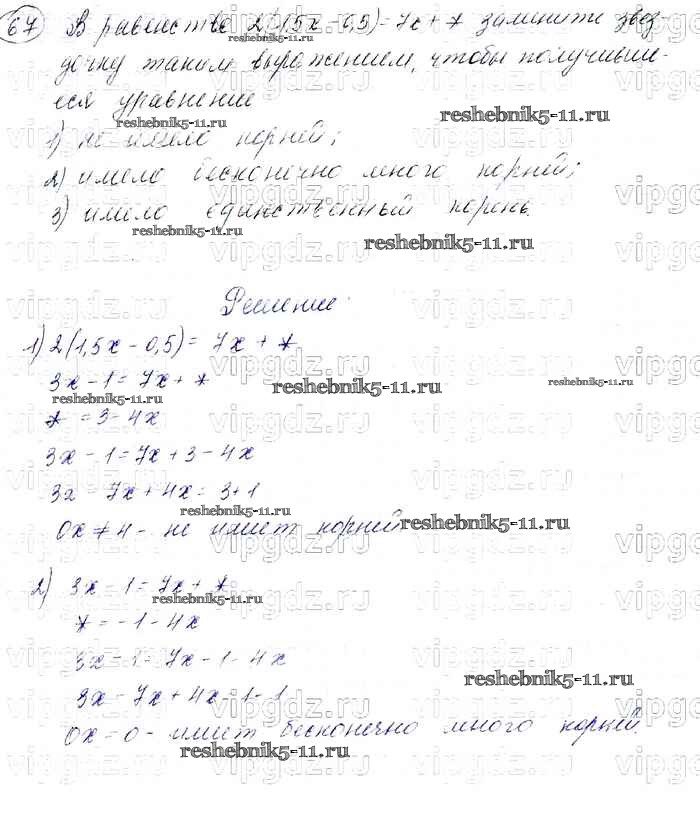 67 В равенстве 2(1,5x - 0,5) = 7x + * замените звез-
дочку таким выражением, чтобы получивше-
еся уравнение
reshebnik5-11.ru reshebnik5-11.ru
1) не имело корней;
2) имело бесконечно много корней;
3) имело единственный корень.
reshebnik5-11.ru reshebnik5-11.ru
vipgdz.ru
Решение.
1) 2(1,5x - 0,5) = 7x + *
3x - 1 = 7x + *
reshebnik5-11.ru reshebnik5-11.ru reshebnik5-11.ru
* = 3 - 4x
3x - 1 = 7x + 3 - 4x
3x - 7x + 4x = 3 + 1
reshebnik5-11.ru
0x ≠ 4 - не имеет корней reshebnik5-11.ru
2) 3x - 1 = 7x + *
reshebnik5-11.ru
* = -1 - 4x
3x - 1 = 7x - 1 - 4x
reshebnik5-11.ru
3x - 7x + 4x = 1 - 1
0x = 0 - имеет бесконечно много корней.
reshebnik5-11.ru